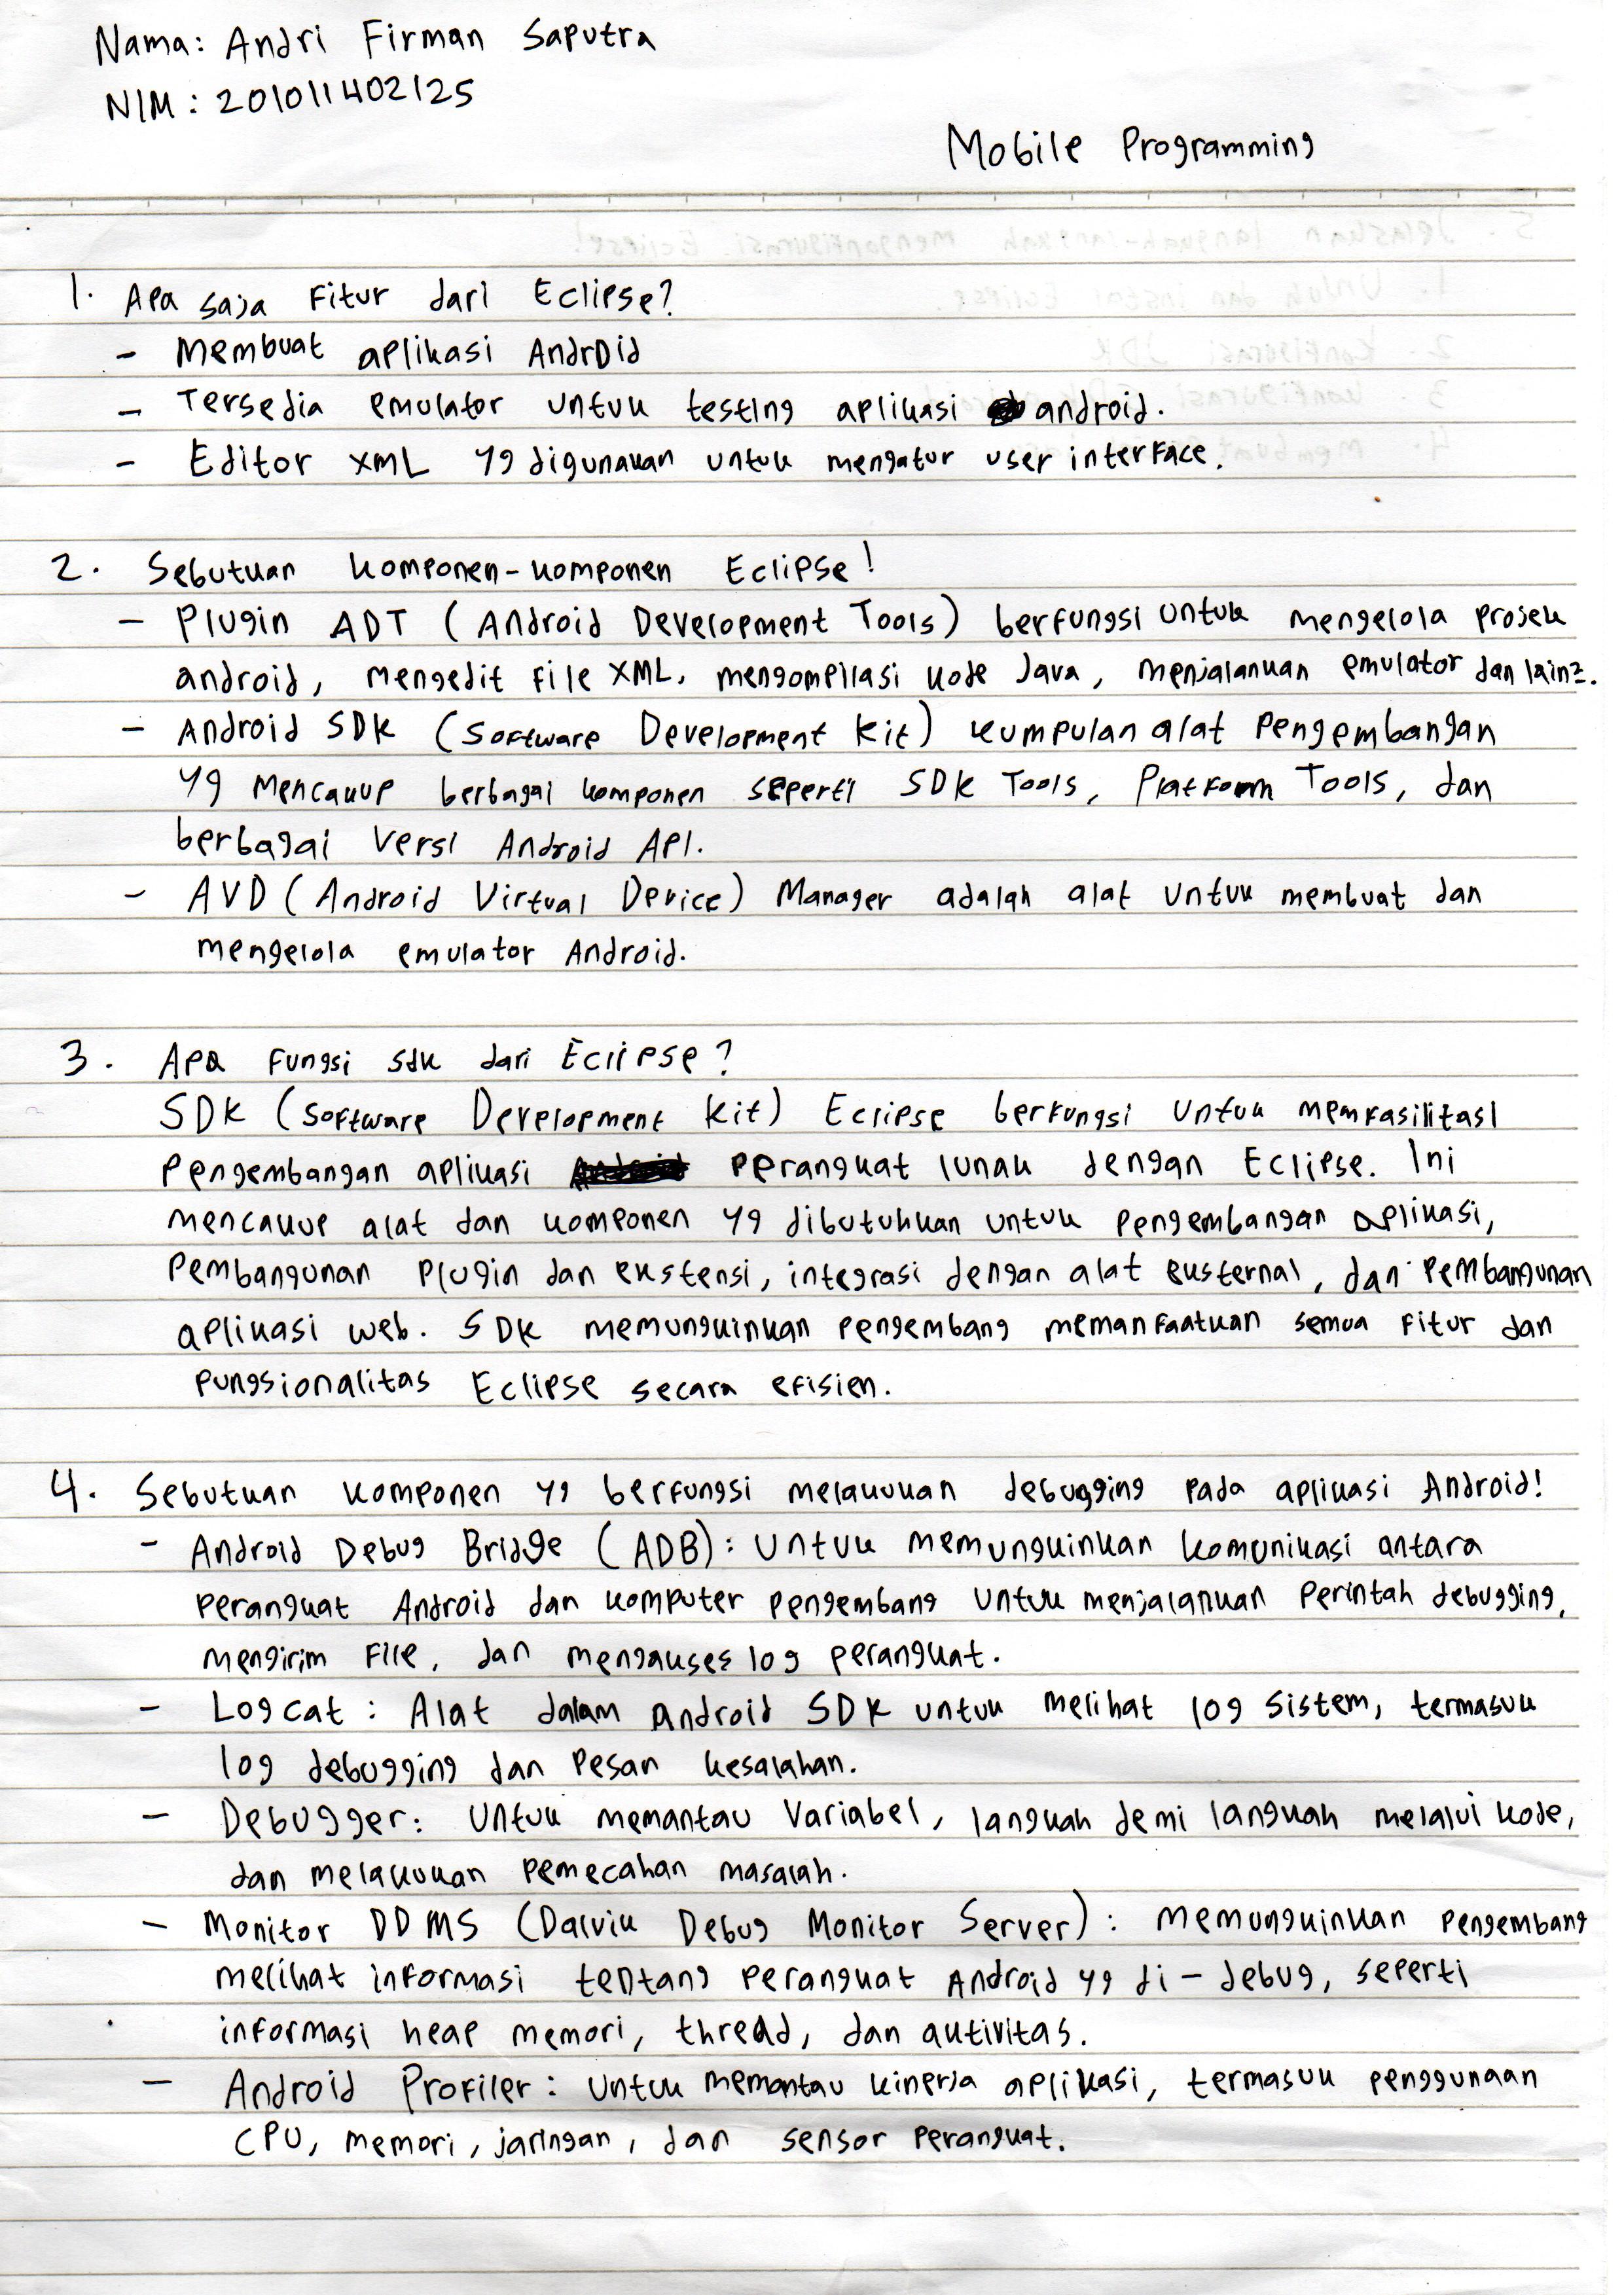 Nama: Andri Firman Saputra
NIM : 201011402125
Mobile Programming
1. Apa saja Fitur dari Eclipse?
- Membuat aplikasi Android
- Tersedia emulator untuk testing aplikasi android.
- Editor XML yg digunakan untuk mengatur user interface.
2. Sebutkan komponen-komponen Eclipse!
- Plugin ADT (Android Development Tools) berfungsi untuk mengelola projek
android, mengedit file XML, mengompilasi kode Java, menjalankan emulator dan lain2.
- Android SDK (Software Development Kit) kumpulan alat pengembangan
yg mencakup berbagai komponen seperti SDK Tools, Platform Tools, dan
berbagai versi Android API.
- AVD (Android Virtual Device) Manager adalah alat untuk membuat dan
mengelola emulator Android.
3. Apa fungsi sdk dari Eclipse?
SDK (Software Development Kit) Eclipse berfungsi untuk memfasilitasi
pengembangan aplikasi perangkat lunak dengan Eclipse. Ini
mencakup alat dan komponen yg dibutuhkan untuk pengembangan aplikasi,
pembangunan plugin dan ekstensi, integrasi dengan alat eksternal, dan pembangunan
aplikasi web. SDK memungkinkan pengembang memanfaatkan semua fitur dan
pungsionalitas Eclipse secara efisien.
4. Sebutkan komponen yg berfungsi melakukan debugging pada aplikasi Android!
- Android Debug Bridge (ADB): Untuk memungkinkan komunikasi antara
perangkat Android dan komputer pengembang untuk menjalankan perintah debugging,
mengirim file, dan mengakses log perangkat.
- Logcat : Alat dalam Android SDK untuk melihat log sistem, termasuk
log debugging dan pesan kesalahan.
- Debugger: Untuk memantau variabel, langkah demi langkah melalui kode,
dan melakukan pemecahan masalah.
- Monitor DDMS (Dalvik Debug Monitor Server) : memungkinkan pengembang
melihat informasi tentang perangkat Android yg di-debug, seperti
informasi heap memori, thread, dan aktivitas.
- Android Profiler : Untuk memantau kinerja aplikasi, termasuk penggunaan
CPU, memori, jaringan, dan sensor perangkat.